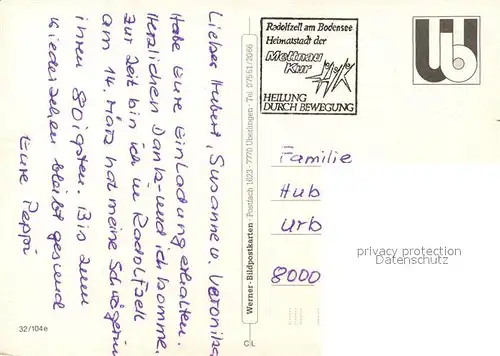 Lieber Hubert, Susanne u. Veronika,
Habe Eure Einladung erhalten.
Herzlichen Dank - und ich komme.
Zur Zeit bin ich in Radolfzell
am 14. März hat meine Schwägerin
ihren 80igsten. Bis zum
Wiedersehen bleibt gesund
Eure Peppi
32/104e
Werner-Bildpostkarten · Postfach 1623 · 7770 Überlingen · Tel. 07551/2066
C L
Radolfzell am Bodensee
Heimatstadt der
Mettnau
Kur
HEILUNG
DURCH BEWEGUNG
Familie
Hub
Urb
8000
privacy protection
Datenschutz